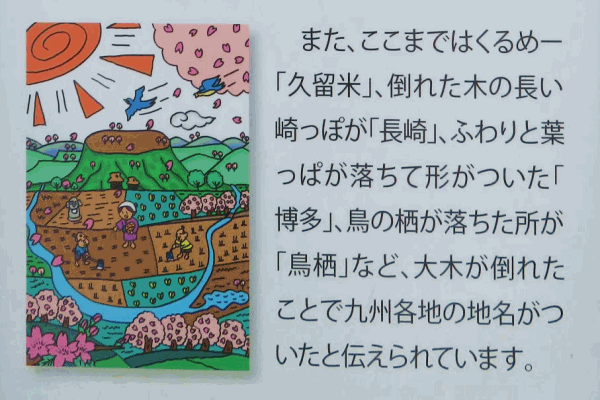 また、ここまではくるめー
「久留米」、倒れた木の長い
崎っぽが「長崎」、ふわりと葉
っぱが落ちて形がついた「
博多」、鳥の栖が落ちた所が
「鳥栖」など、大木が倒れた
ことで九州各地の地名がつ
いたと伝えられています。